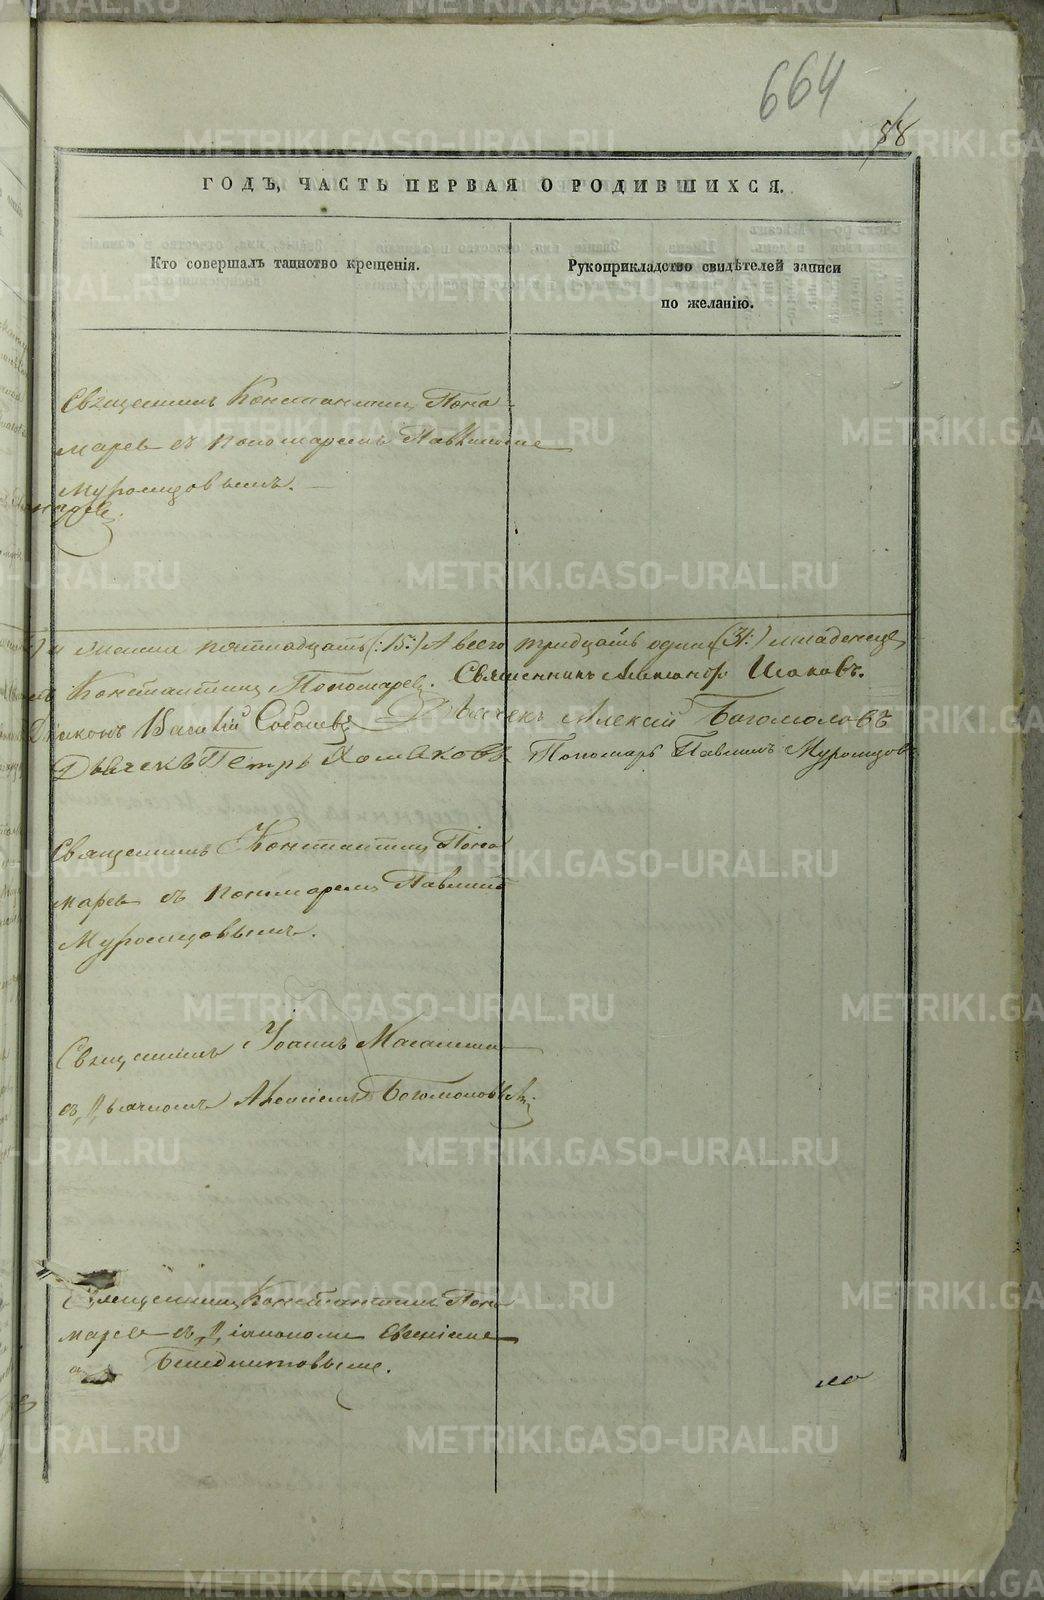 664
88
ГОДЪ, ЧАСТЬ ПЕРВАЯ О РОДИВШИХСЯ.
Кто совершалъ таинство крещенія.
Рукоприкладство свидѣтелей записи
по желанію.
Священникъ Константинъ Поно-
маревъ съ пономаремъ Павлиномъ
Муромцовымъ.
пятнадцать (:15:) А всего тридцать одинъ (31:) младенецъ
Константинъ Пономаревъ. Священникъ Александръ Исаковъ.
Діаконъ Василій Соболевъ Дьячекъ Алексій Богомоловъ
Дьячекъ Петръ Хомяковъ Пономарь Павлинъ Муромцовъ
Священникъ Константинъ Поно
маревъ съ пономаремъ Павлиномъ
Муромцовымъ.
Священникъ Іоаннъ
съ Дьячкомъ Алексіемъ Богомоловымъ
Священникъ Константинъ Поно
маревъ съ Діакономъ Евгеніемъ
METRIKI.GASO-URAL.RU